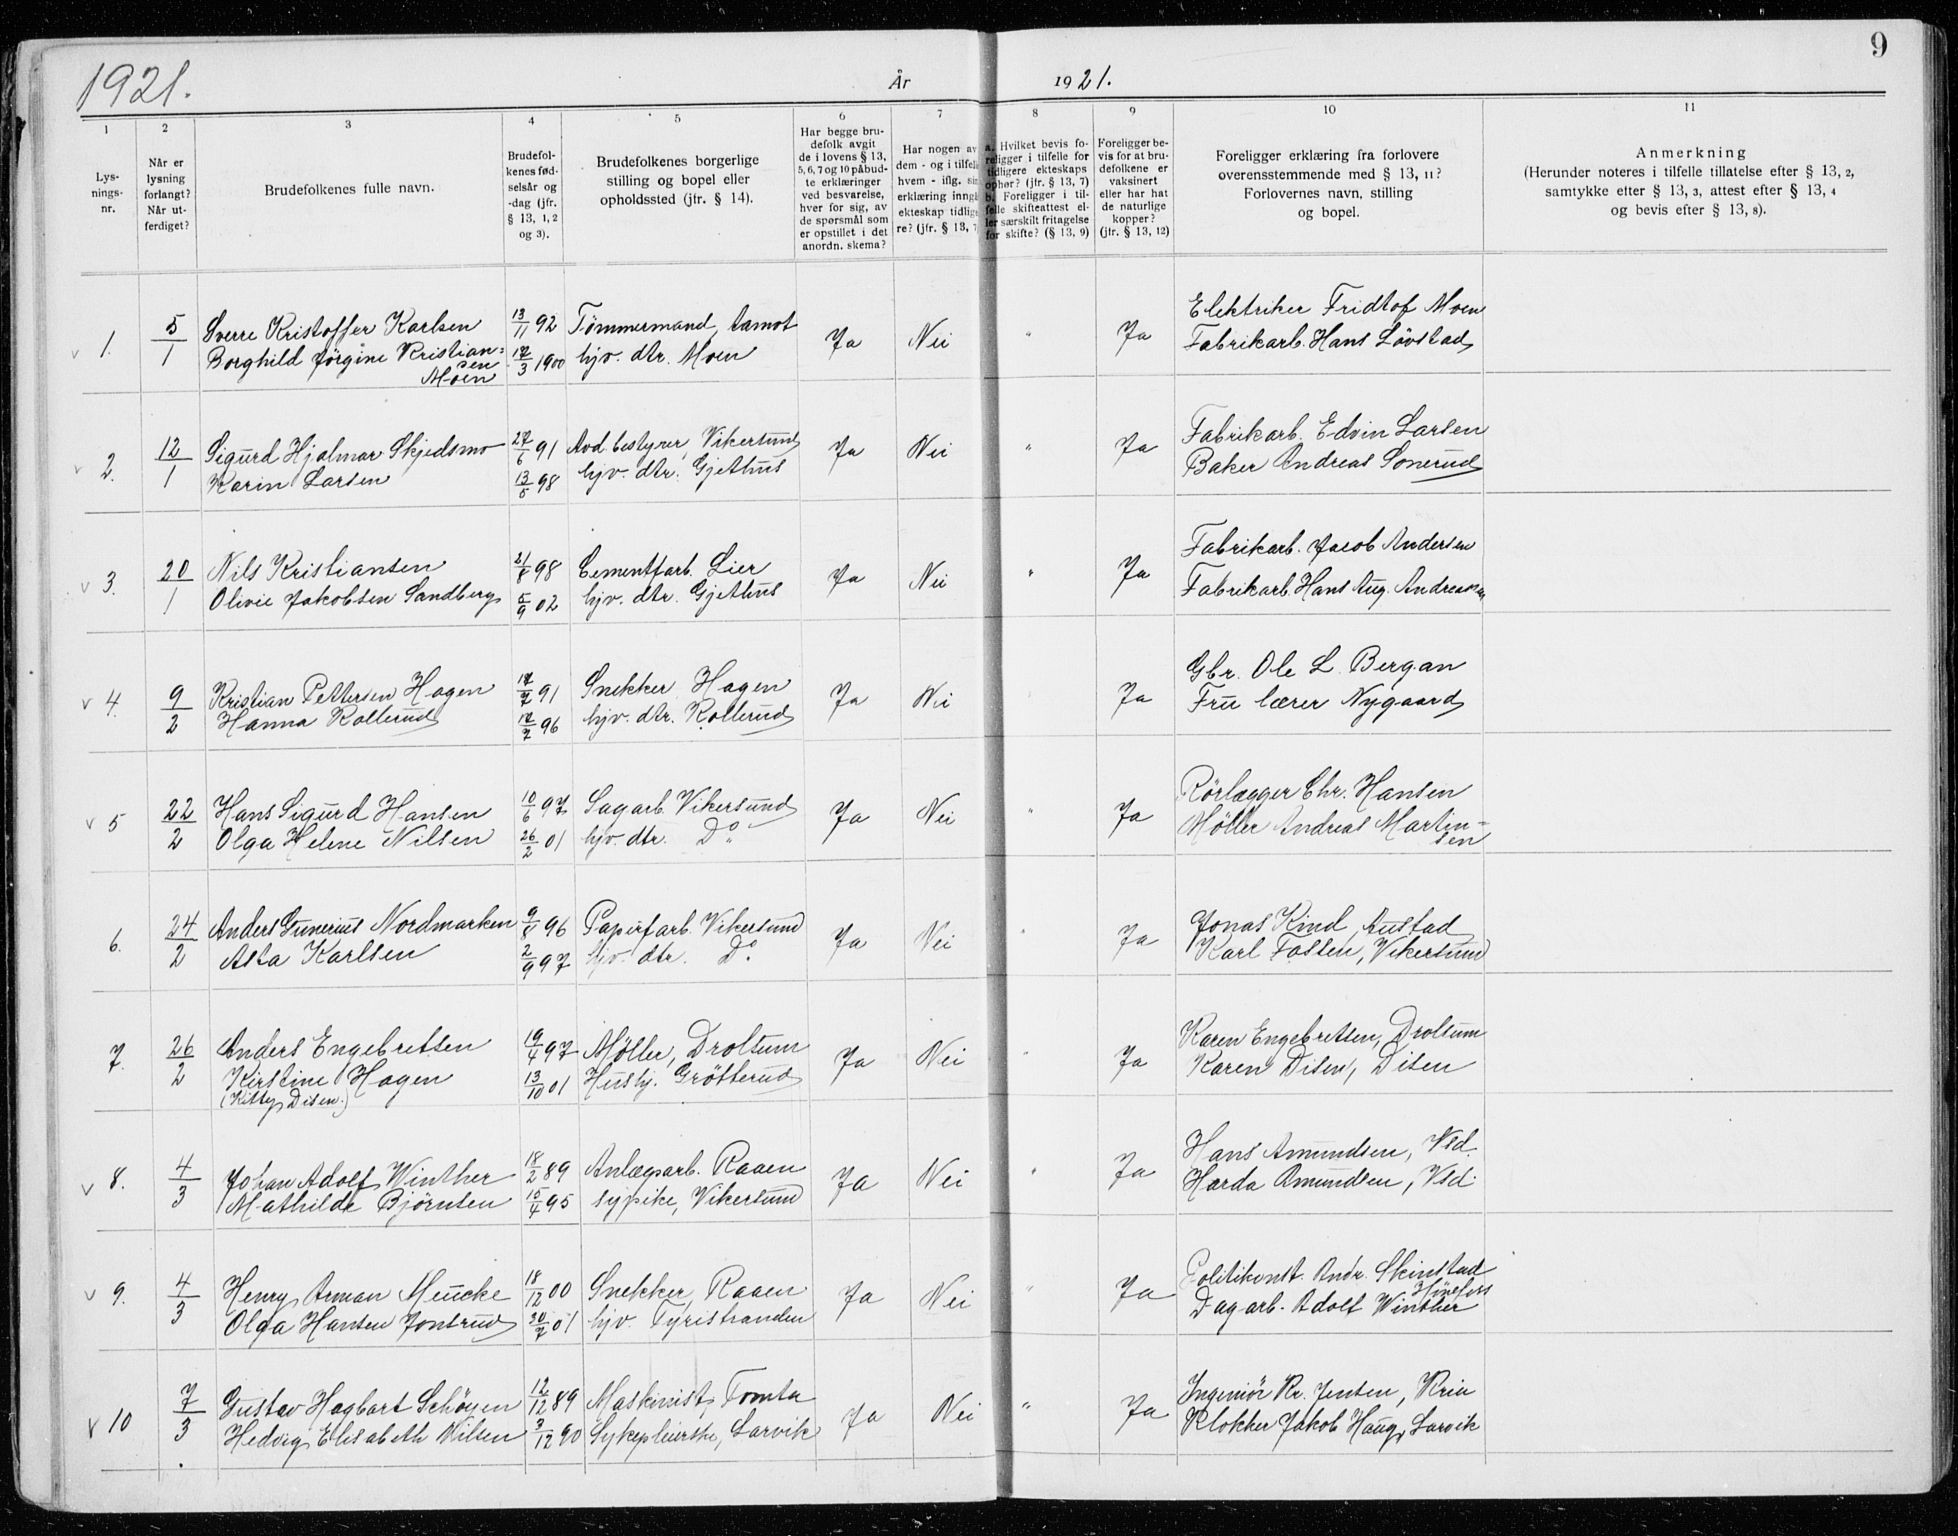 9
1921.
År
1921.
1 2 3 4 5 6 7 8 9 10 11
Lys-
nings-
nr.
Når er
lysning
forlangt?
Når ut-
ferdiget?
Brudefolkenes fulle navn.
Brudefol-
kenes fød-
selsår og
-dag (jfr.
§ 13, 1, 2
og 3).
Brudefolkenes borgerlige
stilling og bopel eller
opholdssted (jfr. § 14).
Har begge bru-
defolk avgit
de i lovens § 13,
5, 6, 7 og 10 påbud-
te erklæringer
ved besvarelse,
hver for sig, av
de spørsmål som
er opstillet i det
anordn. skema?
Har nogen av
dem - og i tilfelle
hvem - iflg. sin
erklæring inngå
ekteskap tidlige
re? (jfr. § 13, 7
a. Hvilket bevis fo-
religger i tilfelle for
tidligere ekteskaps
ophør? (jfr. § 13, 7)
b. Foreligger i til-
felle skifteattest el-
ler særskilt fritagelse
for skifte? (§ 13, 9)
Foreligger be-
vis for at bru-
defolkene er
vaksinert
eller har hat
de naturlige
kopper?
(jfr. § 13, 12)
Foreligger erklæring fra forlovere
overensstemmende med § 13, 11?
Forlovernes navn, stilling
og bopel.
Anmerkning
(Herunder noteres i tilfelle tillatelse efter § 13, 2,
samtykke efter § 13, 3, attest efter § 13, 4
og bevis efter § 13, 8).
v 1. 5/1 Sverre Kristoffer Karlsen 13/11 92 Tömmermand, Aamot Ja Nei " Ja Elektriker Fridtof Moen
Borghild Jörgine Kristian= 17/3 1900 hjv. dtr. Moen Fabrikarb. Hans Lövstad
sen
Moen
v 2. 12/1 Sigurd Hjalmar Skjedsmo 27/6 91 Avd. bestyrer, Vikersund Ja Nei " Ja Fabrikarb. Edvin Larsen
Karin Larsen 13/5 98 hjv. dtr. Gjethus Baker Andreas Sonerud
v 3. 20/1 Nils Kristiansen 21/8 98 Cementfarb. Lier Ja Nei " Ja Fabrikarb. Jacob Andersen
Olivie Jakobsen Sandberg 5/9 02 hjv. dtr. Gjethus Fabrikarb. Hans Aug. Andreassen
v 4. 9/2 Kristian Pettersen Hagen 17/7 91 Snekker Hagen Ja Nei Ja Gbr. Ole L. Bergan
Hanna Kollerud 17/7 96 hjv. dtr. Kollerud Fru lærer Nygaard
v 5 22/2 Hans Sigurd Hansen 10/6 97 Sagarb. Vikersund Ja Nei " Ja Rörlægger Chr. Hansen
Olga Helene Nilsen 26/2 01 hjv. dtr. Do Møller Andreas Martin=
sen
6. 24/2 Anders Gunerius Nordmarken 9/8 96 Papirfarb. Vikersund Ja Nei " Ja Jonas Kind, Austad
Asta Karlsen 2/9 97 hjv. dtr. Do Karl Fossen, Vikersund
7. 26/2 Anders Engebretsen 19/4 97 Møller, Drolsum Ja Nei " Ja Karen Engebretsen, Drolsum
Kirstine Hagen 13/10 01 Hushj. Grötterud Karen Disen, Disen
(Kitty Disen.)
v 8. 4/3 Johan Adolf Winther 18/2 89 Anlægsarb. Raaen Ja Nei " Ja Hans Amundsen, Vsd.
Mathilde Bjørnsen 10/4 95 sypike, Vikersund Harda Amundsen, Vsd.
v 9. 4/3 Henry Arman Meucke 18/12 00 Snekker, Raaen Ja Nei " Ja Politikonst. Andr. Skinstad
Hönefoss
Olga Hansen Jonsrud 30/7 01 hjv. Tyristranden Dagarb. Adolf Winther
v 10 7/3 Gustav Hagbart Schöyen 12/12 89 Maskinist, Tomta Ja Nei " Ja Ingeniör Kr. Jensen, Kria
Hedvig Elisabeth Nilsen 3/12 90 Sykepleierske, Larvik Klokker Jakob Haug, Larvik